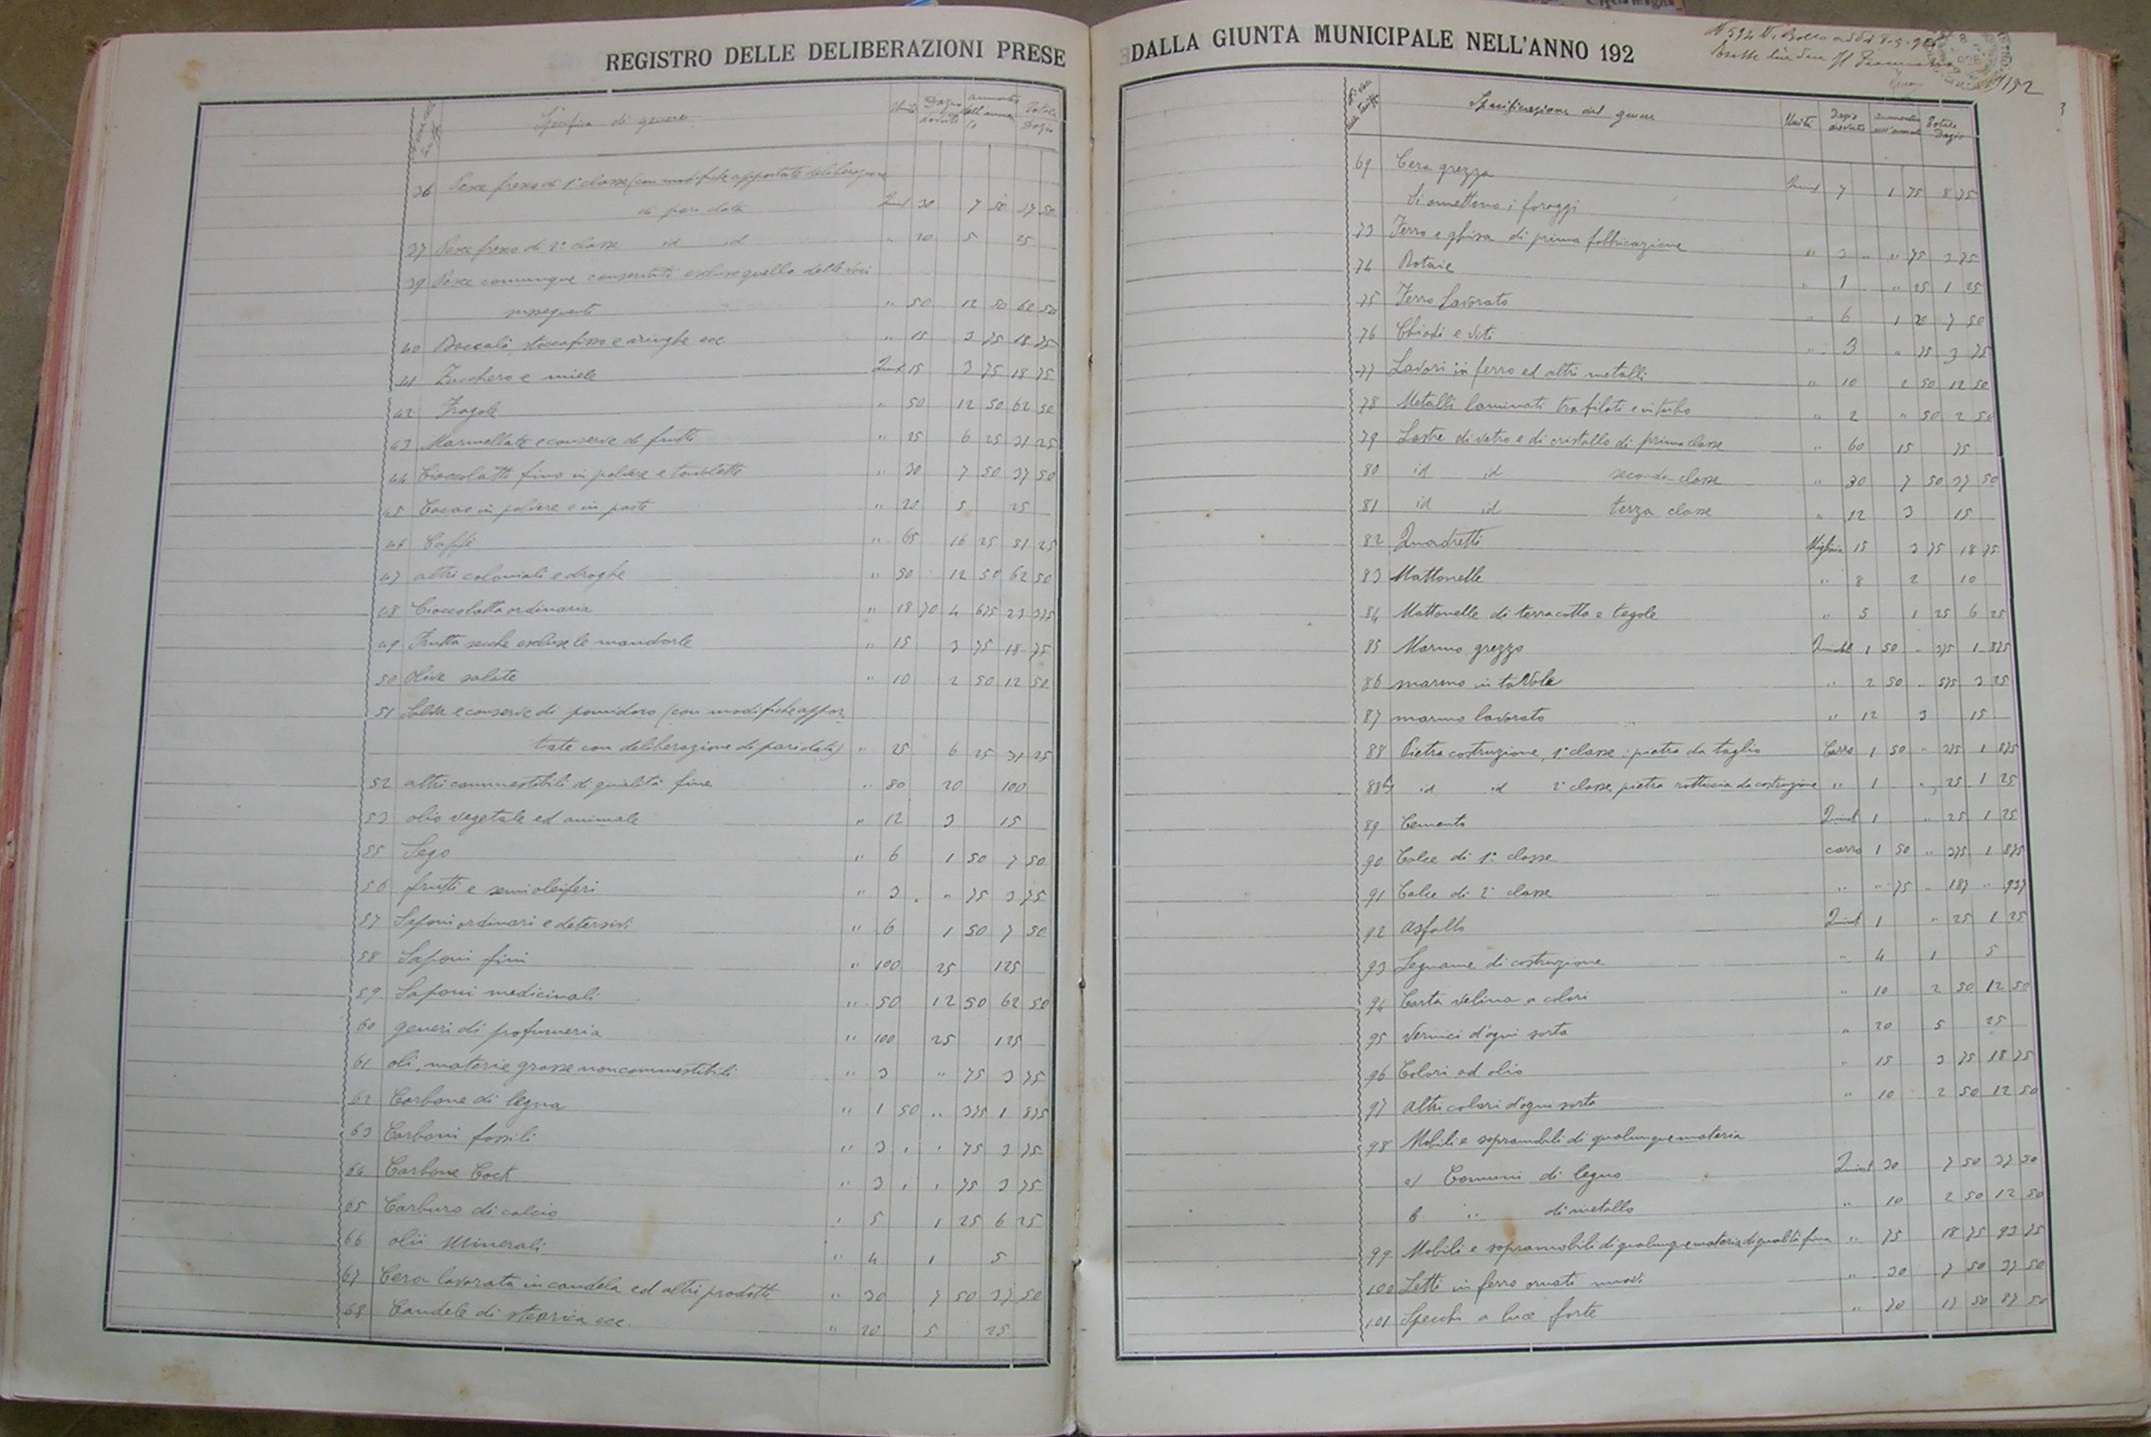 REGISTRO DELLE DELIBERAZIONI PRESE
Specifica di genere Unità Dazio dovuto aumento dell'anno Totale Dazio
36 Pesce fresco di 1ª classe (con modifiche apportate deliberazione
di pari data Quint 30 7 50 37 50
37 Pesce fresco di 2ª classe id id " 20 5 25
39 Pesce comunque conservati escluso quello delle voci
susseguenti " 50 12 50 62 50
40 Baccalà, stoccafisso e aringhe ecc " 15 3 75 18 75
41 Zucchero e miele Quint 15 3 75 18 75
42 Fragole " 50 12 50 62 50
43 Marmellate e conserve di frutti " 25 6 25 31 25
44 Cioccolatti fino in polvere e tavolette " 30 7 50 37 50
45 Cacao in polvere o in pasta " 20 5 25
46 Caffè " 65 16 25 81 25
47 altri coloniali e droghe " 50 12 50 62 50
48 Cioccolatta ordinaria " 18 70 4 675 23 375
49 Frutta secche escluse le mandorle " 15 3 75 18 75
50 Olive salate " 10 2 50 12 50
51 Salsa e conserve di pomidoro (con modifiche appor
tate con deliberazione di pari data) " 25 6 25 31 25
52 altri commestibili di qualità fine " 80 20 100
53 olio vegetale ed animale " 12 3 15
55 Sego " 6 1 50 7 50
56 frutti e semi oleiferi " 3 " " 75 3 75
57 Saponi ordinari e detersivi " 6 1 50 7 50
58 Saponi fini " 100 25 125
59 Saponi medicinali " 50 12 50 62 50
60 generi di profumeria " 100 25 125
61 oli, materie grasse non commestibili " 3 " 75 3 75
62 Carbone di legna " 1 50 " 375 1 875
63 Carboni fossili " 3 " " 75 3 75
64 Carbone Cock " 3 " " 75 3 75
65 Carburo di calcio " 5 1 25 6 25
66 olii Minerali " 4 1 5
67 Cera lavorata in candela ed altri prodotti " 30 7 50 37 50
68 Candele di stearica ecc. " 20 5 25
DALLA GIUNTA MUNICIPALE NELL'ANNO 192
152
Specificazione del genere Unità Dazio dovuto aumento dell'annata Totale Dazio
69 Cera grezza Quint 7 1 75 8 75
Si omettono i foraggi
73 Ferro e ghisa di prima fabbricazione " 3 " " 75 3 75
74 Rotaie " 1 " 25 1 25
75 Ferro Lavorato " 6 1 50 7 50
76 Chiodi e viti " 3 " 75 3 75
77 Lavori in ferro ed altri metalli " 10 2 50 12 50
78 Metalli laminati trafilati e in tubo " 2 " 50 2 50
79 Lastre di vetro e di cristallo di prima classe " 60 15 75
80 id id seconda classe " 30 7 50 37 50
81 id id terza classe " 12 3 15
82 Quadretti Migliaia 15 3 75 18 75
83 Mattonelle " 8 2 10
84 Mattonelle di terracotta e tegole " 5 1 25 6 25
85 Marmo grezzo Quintal 1 50 " 375 1 875
86 marmo in tavole " 2 50 " 575 3 25
87 marmo lavorato " 12 3 15
88 Pietra costruzione, 1ª classe: pietra da taglio Carro 1 50 " 375 1 875
88bis id id 2ª classe, pietra rotticcia da costruzione " 1 " 25 1 25
89 Cemento Quint 1 " 25 1 25
90 Calce di 1ª classe carro 1 50 " 375 1 875
91 Calce di 2ª classe " " 75 " 187 " 937
92 asfalto Quint 1 " 25 1 25
93 Legname di costruzione " 4 1 5
94 Carta velina a colori " 10 2 50 12 50
95 Vernici d'ogni sorta " 20 5 25
96 Colori ad olio " 15 3 75 18 75
97 altri colori d'ogni sorta " 10 2 50 12 50
98 Mobili e soprambili di qualunque materia
a/ Comuni di legno Quint 30 7 50 37 50
b. " di metallo " 10 2 50 12 50
99 Mobili e soprammobili di qualunque materia di qualità fina " 75 18 75 93 75
100 Letti in ferro ornati nuovi " 30 7 50 37 50
101 Specchi a luce forte " 70 17 50 87 50